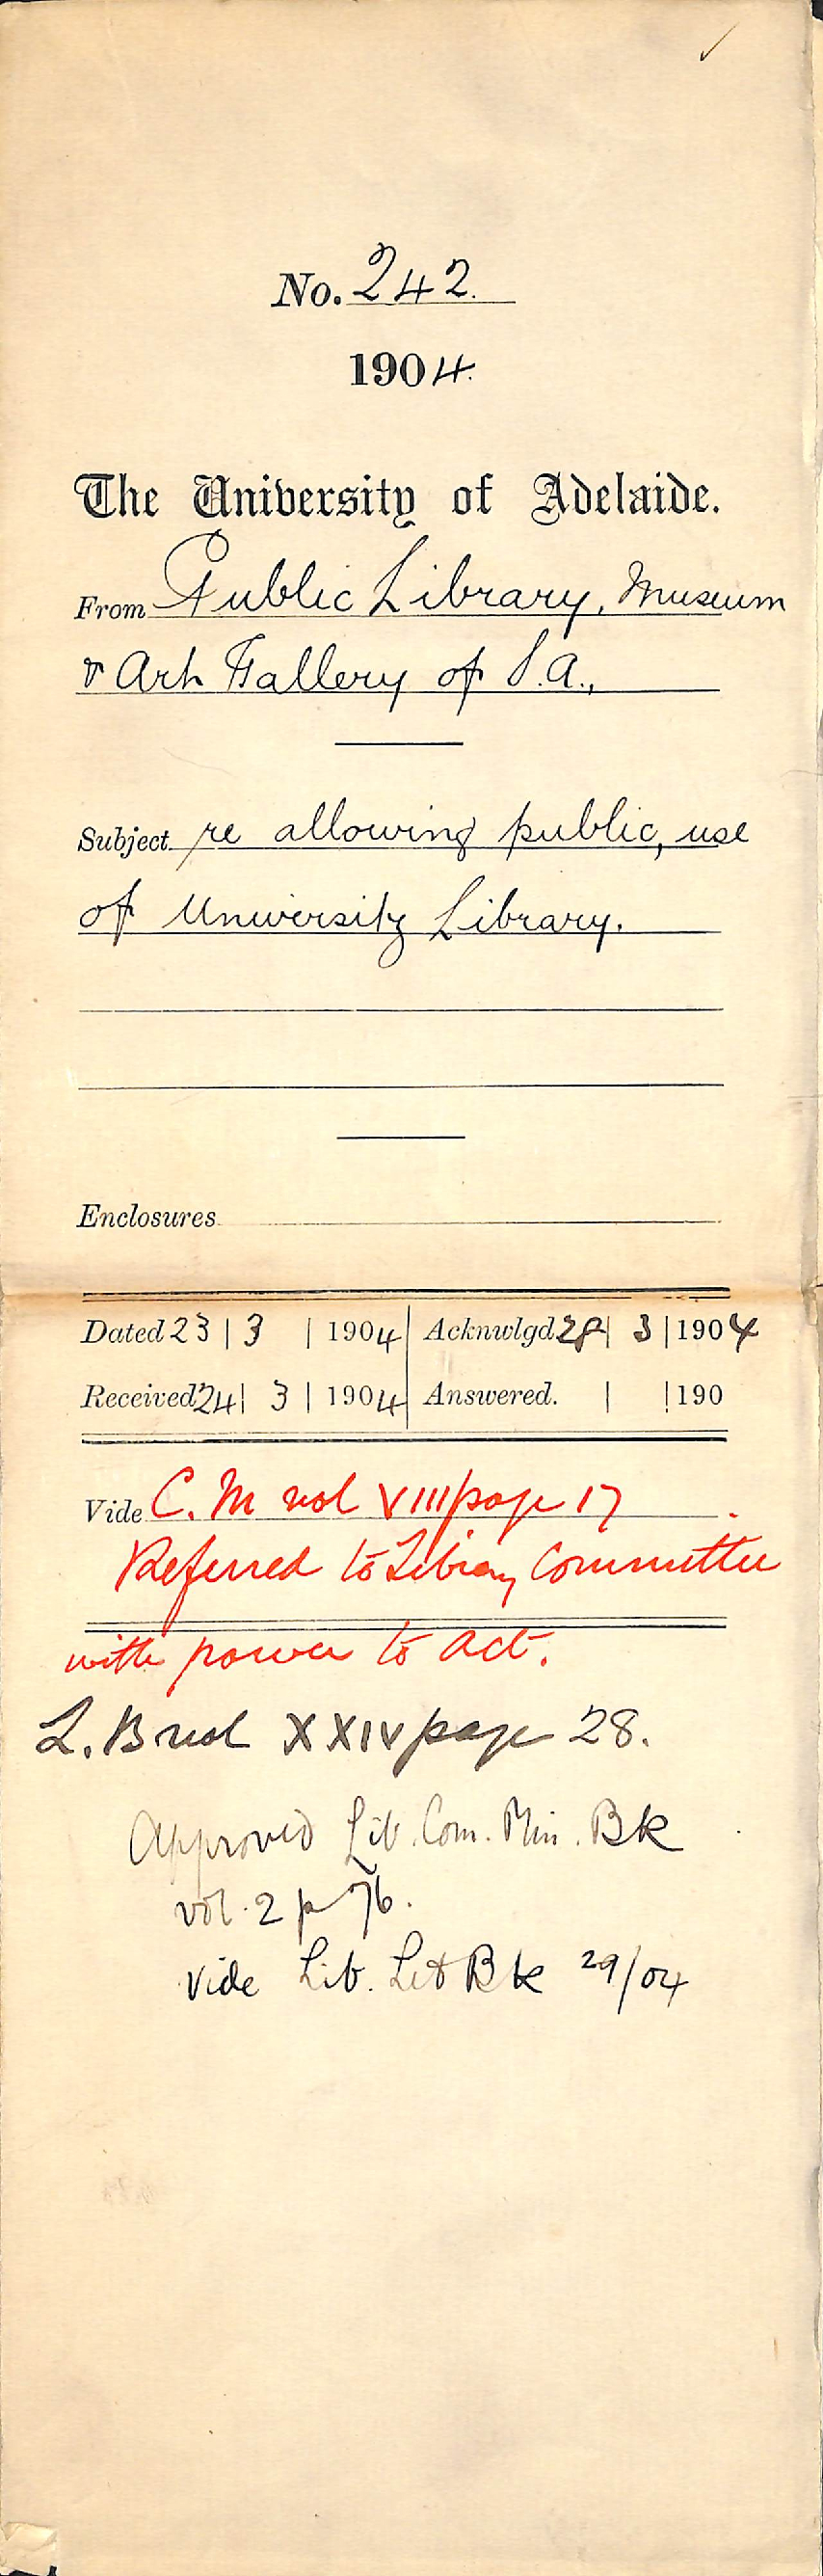 No. 242.
1904.
The University of Adelaide.
From Public Library, Museum
& Art Gallery of S.A.,
Subject re allowing public, use
of University Library.
Enclosures
Dated 23 | 3 | 1904 Acknwlgd 28 | 3 | 1904
Received 24 | 3 | 1904 Answered. | | 190
Vide C. M vol VIII page 17
Referred to Library Committee
with power to act.
L. B vol XXIV page 28.
Approved Lib. Com. Min. Bk
vol. 2 p 76.
Vide Lib. Let Bk 29/04